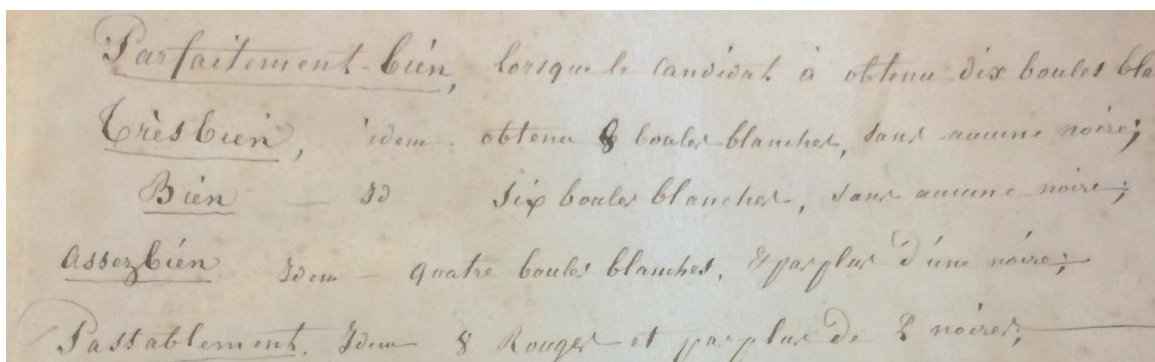 Parfaitement-bién, lorsque le candidat à obtenu dix boules bla
Très bién, idem - obtenu 8 boules blanches, sans aucune noire;
Bién — Id six boules blanches, sans aucune noire;
assez bién Idem - quatre boules blanches, & pas plus d'une noire;
Passablement. Idem - 8 Rouges et pas plus de 2 noires;